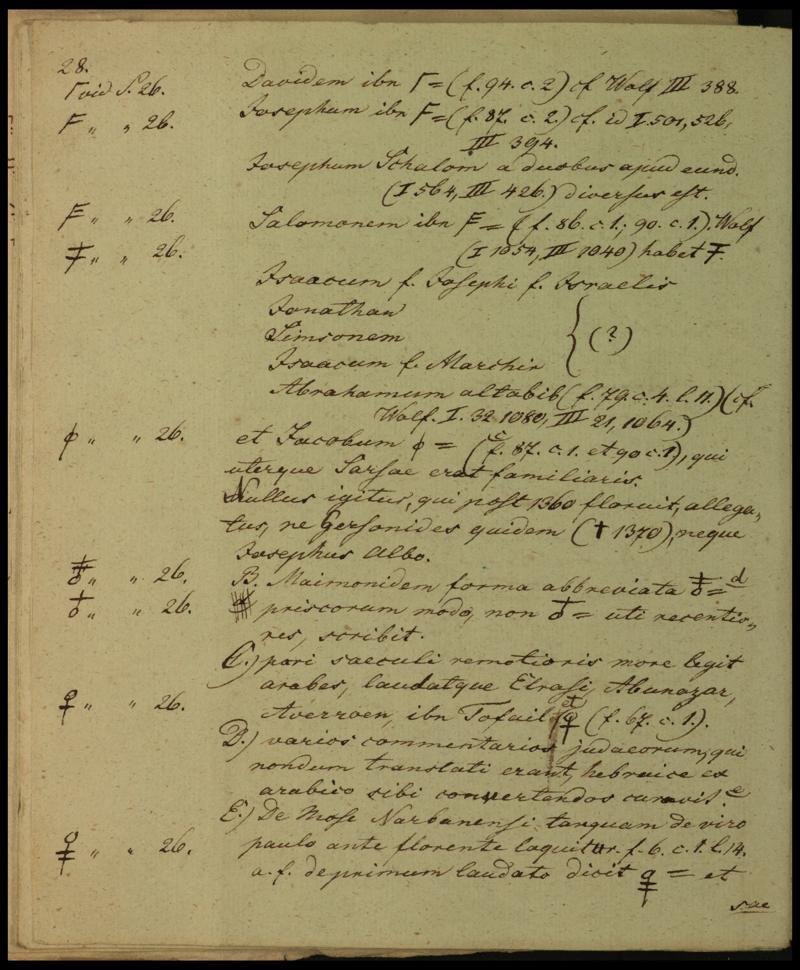 28.
Γ vid S. 26. Davidem ibn Γ = (f. 94. c. 2) cf Wolf III 388.
F „ „ 26. Josephum ibn F = (f. 87. c. 2.) cf. id I. 501, 526,
III 394.
Josephum Schalom a duobus apud eund.
(I 564, III 426.) diversus est.
F „ „ 26. Salomonem ibn F = (f. 86. c. 1.; 90. c. 1.). Wolf
Ŧ „ „ 26. (I 1054, III 1040) habet Ŧ.
Isaacum f. Josephi f. Israelis
Jonathan
Simsonem (?)
Isaacum f. Marchir
Abrahamum altabib (f. 79. c. 4. l. 11.) (cf.
Wolf. I. 32. 1080, III 21, 1064.)
ϕ „ „ 26. et Jacobum ϕ = (f. 87. c. 1. et 90 c. 1), qui
uterque Sarsae erat familiaris.
Nullus igitur, qui post 1360 floruit, allega„
tus, ne Gersonides quidem († 1370), neque
Josephus Albo.
„ „ 26. B. Maimonidem forma abbreviata = d
♁ „ „ 26. priscorum modo, non ♁ = uti recentio„
res, scribit.
C.) pari saeculi remotioris more legit
arabes, laudatque Elrasi, Abunazar,
♀ „ „ 26. Averroen, ibn Tofail et ♀ (f. 67. c. 1.).
D.) varios commentarios judaeorum, qui
nondum translati erant, hebraice ex
arabico sibi convertendos curavit. e
E.) De Mose Narbanensi tanquam de viro
♀ „ „ 26. paulo ante florente loquitur. f. 6. c. 1. l. 14.
a. f. de primum laudato dicit ♀ = et
sae